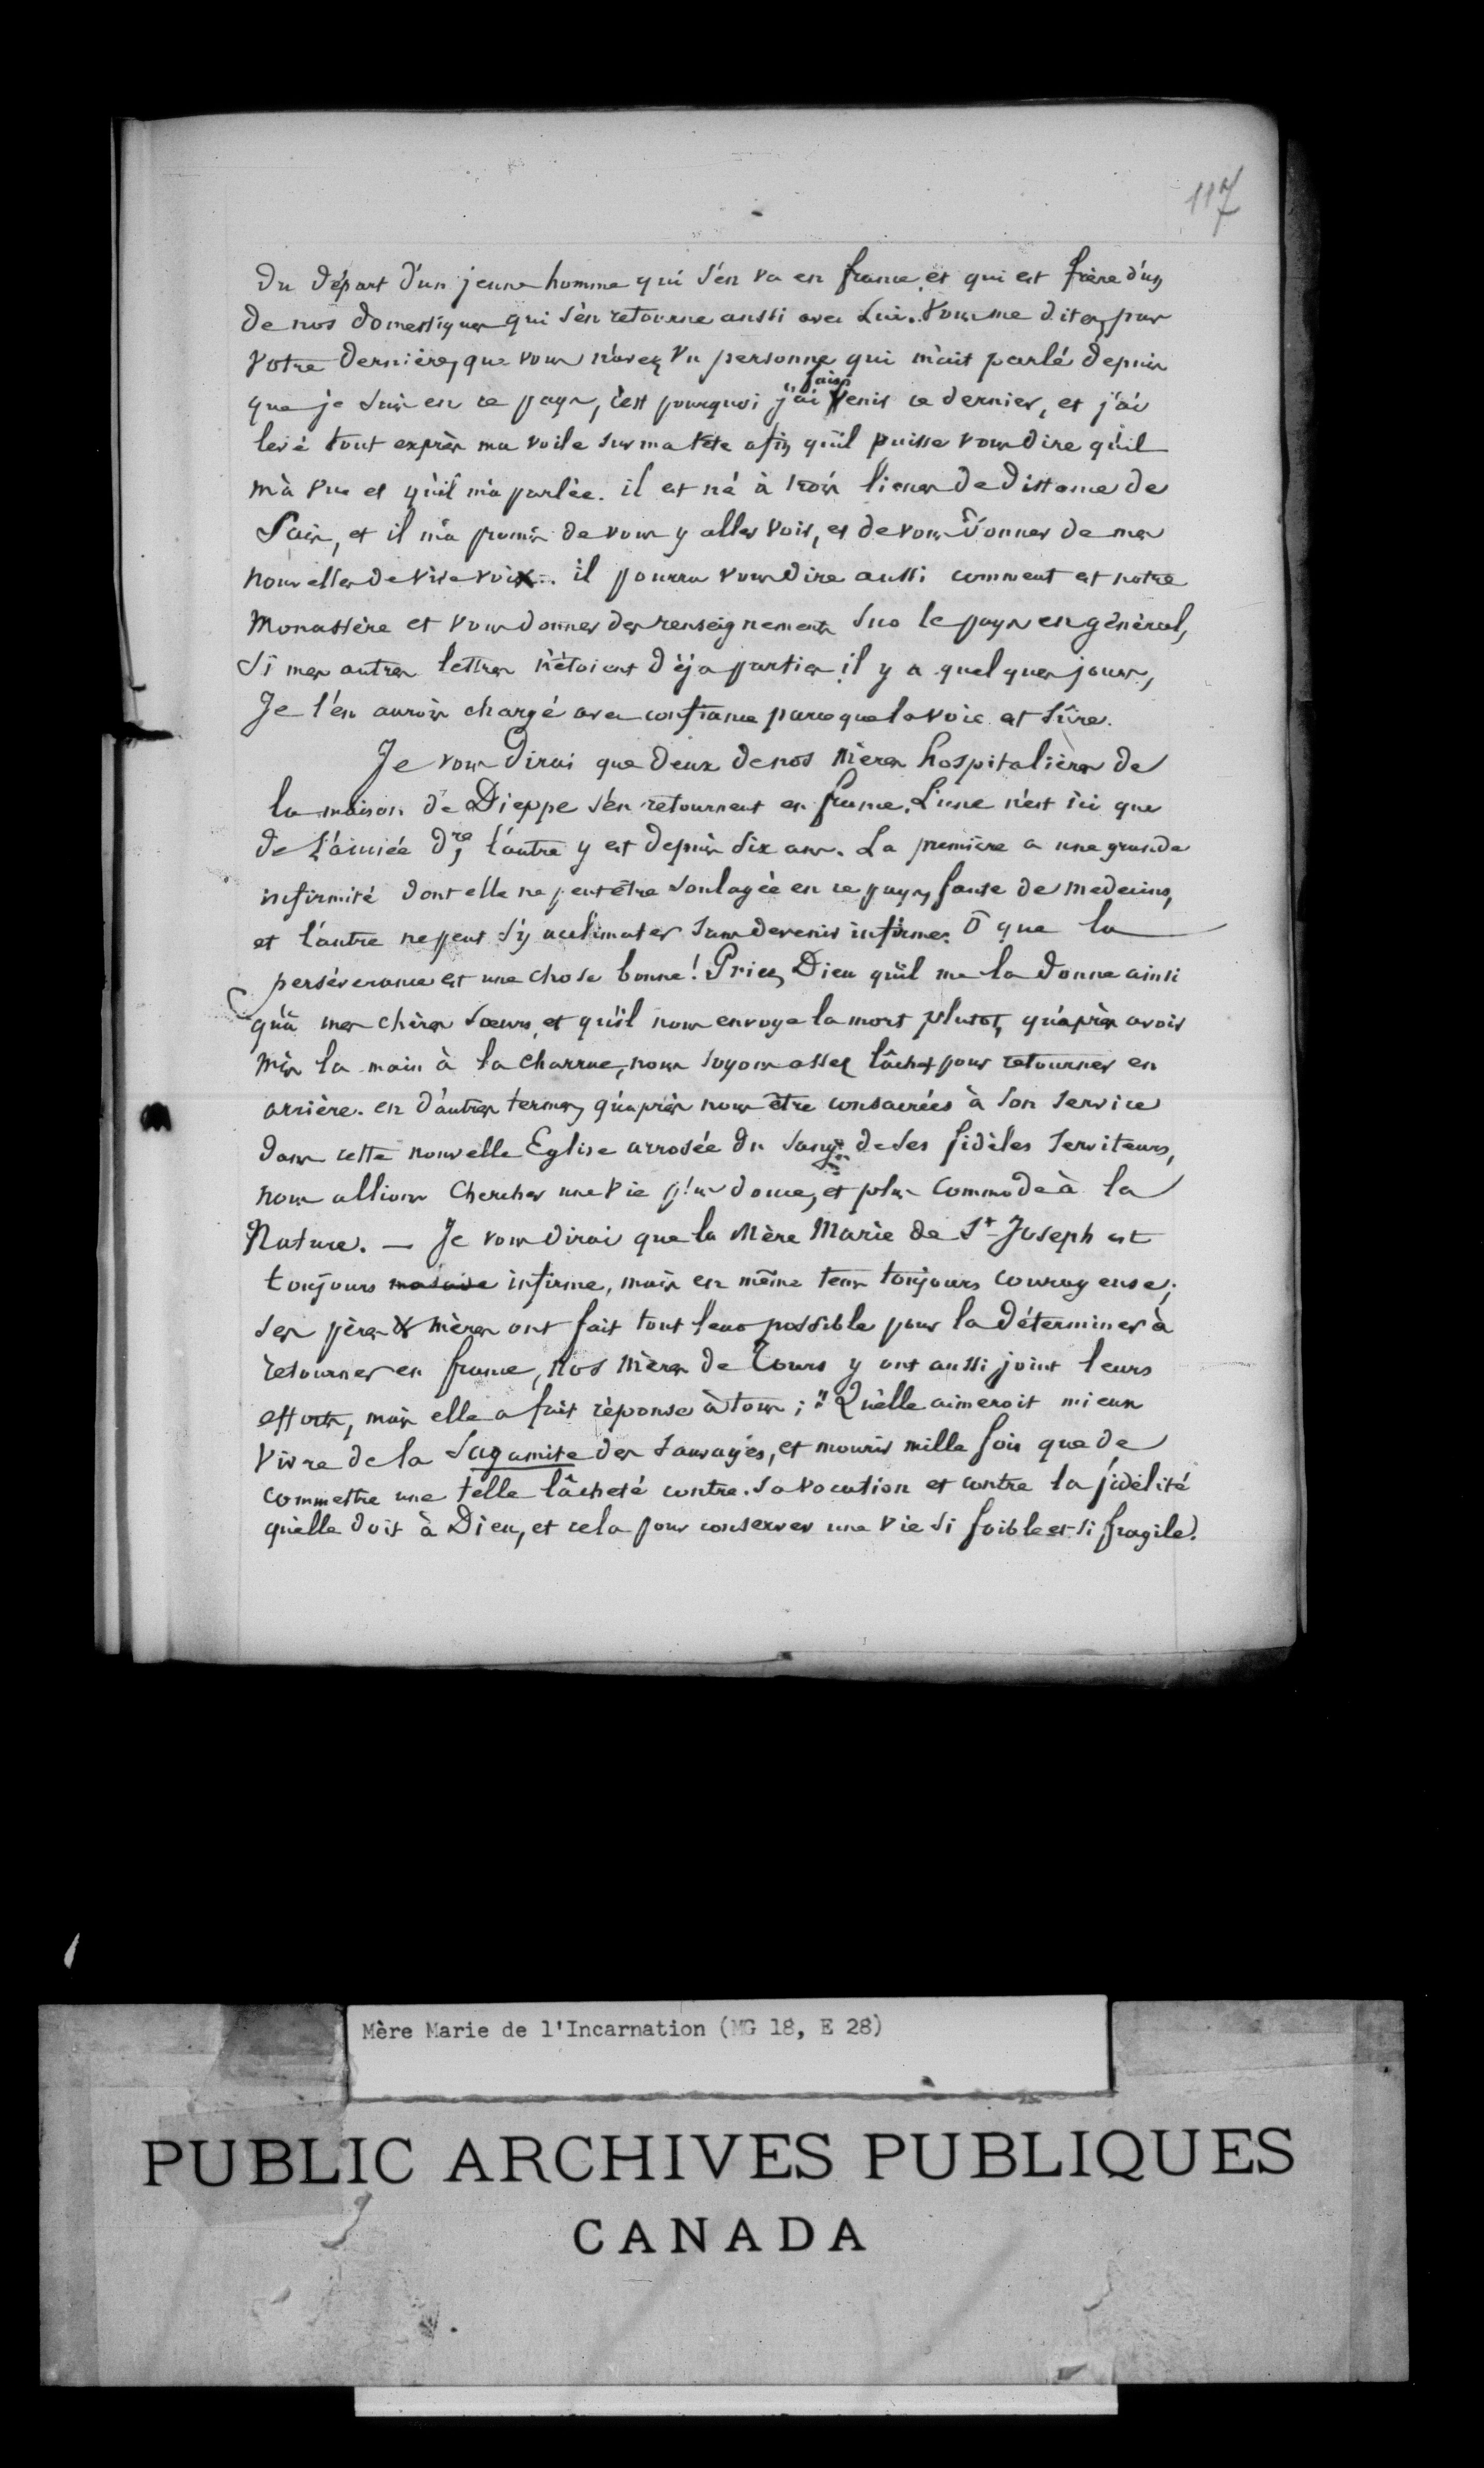 117
du départ d'un jeune homme qui s'en va en france et qui est frère d'un
de nos domestiques qui s'en retourne aussi avec Lui. Vous me dites, par
votre dernière, que vous n'avez vu personne qui m'ait parlé depuis
fait
que je suis en ce pays, c'est pourquoi j'ai venir ce dernier, et j'ai
levé tout exprès ma voile sur ma tête afin qu'il puisse vous dire qu'il
m'à vue et qu'il m'a parlée. il est né à trois lieues de distance de
Paris, et il m'a promis de vous y aller voir, et de vous donner de mes
nouvelles de vive voix. il pourra vous dire aussi comment est notre
Monastère et vous donner des renseignements sur le pays en général,
Si mes autres lettres n'étoient déja parties il y a quelques jours,
Je l'en aurois chargé avec confiance parceque la voie est sûre.
Je vous dirai que deux de nos mères hospitalières de
la maison de Dieppe s'en retournent en france. L'une n'est ici que
de l'année dre, l'autre y est depuis six ans. La première a une grande
infirmité dont elle ne peut être soulagée en ce pays, fause de medecins,
et l'autre ne peut s'y acclimater sans devenir infirme. ô que la
persévérance est une chose bonne! Priez Dieu qu'il me la donne ainsi
qu'à mes chères sœurs, et qu'il nous envoye la mort plutot, qu'après avoir
mis la main à la charrue, nous soyons assez lâches pour retourner en
arrière. en d'autres termes, qu'après nous être consacrées à son service
dans cette nouvelle Eglise arrosée du sang de ses fidèles serviteurs,
nous allions chercher une vie plus douce, et plus commode à la
Nature. — Je vous dirai que la Mère Marie de St Joseph est
toujours infirme, mais en même tems toujours courageuse;
ses pères & mères ont fait tout leur possible pour la déterminer à
retourner en france, nos mères de Tours y ont aussi joint leurs
efforts, mais elle a fait réponse à tous; " Qu'elle aimeroit mieux
vivre de la Sagamite des sauvages, et mourir mille fois que de
commettre une telle lâcheté contre sa vocation et contre la fidélité
qu'elle doit à Dieu, et cela pour conserver une vie si foible et si fragile.
Mère Marie de l'Incarnation (MG 18, E 28)
PUBLIC ARCHIVES PUBLIQUES
CANADA